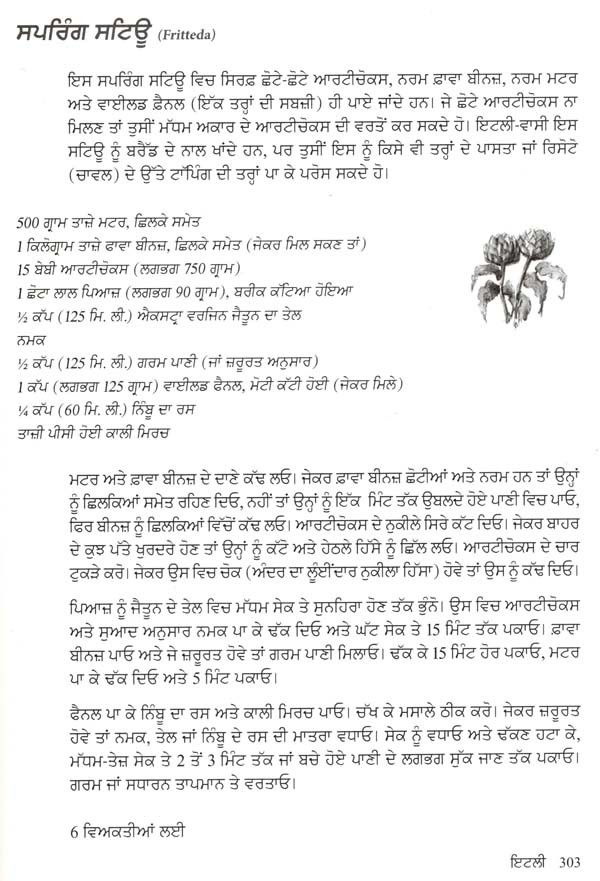 ਸਪਰਿੰਗ ਸਟਿਊ (Fritteda)
ਇਸ ਸਪਰਿੰਗ ਸਟਿਊ ਵਿਚ ਸਿਰਫ਼ ਛੋਟੇ-ਛੋਟੇ ਆਰਟੀਚੋਕਸ, ਨਰਮ ਫ਼ਾਵਾ ਬੀਨਜ਼, ਨਰਮ ਮਟਰ
ਅਤੇ ਵਾਈਲਡ ਫ਼ੈਨਲ (ਇੱਕ ਤਰ੍ਹਾਂ ਦੀ ਸਬਜ਼ੀ) ਹੀ ਪਾਏ ਜਾਂਦੇ ਹਨ। ਜੇ ਛੋਟੇ ਆਰਟੀਚੋਕਸ ਨਾ
ਮਿਲਣ ਤਾਂ ਤੁਸੀਂ ਮੱਧਮ ਅਕਾਰ ਦੇ ਆਰਟੀਚੋਕਸ ਦੀ ਵਰਤੋਂ ਕਰ ਸਕਦੇ ਹੋ। ਇਟਲੀ-ਵਾਸੀ ਇਸ
ਸਟਿਊ ਨੂੰ ਬਰੈੱਡ ਦੇ ਨਾਲ ਖਾਂਦੇ ਹਨ, ਪਰ ਤੁਸੀਂ ਇਸ ਨੂੰ ਕਿਸੇ ਵੀ ਤਰ੍ਹਾਂ ਦੇ ਪਾਸਤਾ ਜਾਂ ਰਿਸੋਟੋ
(ਚਾਵਲ) ਦੇ ਉੱਤੇ ਟਾੱਪਿੰਗ ਦੀ ਤਰ੍ਹਾਂ ਪਾ ਕੇ ਪਰੋਸ ਸਕਦੇ ਹੋ।
500 ਗ੍ਰਾਮ ਤਾਜ਼ੇ ਮਟਰ, ਛਿਲਕੇ ਸਮੇਤ
1 ਕਿਲੋਗ੍ਰਾਮ ਤਾਜ਼ੇ ਫਾਵਾ ਬੀਨਜ਼, ਛਿਲਕੇ ਸਮੇਤ (ਜੇਕਰ ਮਿਲ ਸਕਣ ਤਾਂ)
15 ਬੇਬੀ ਆਰਟੀਚੋਕਸ (ਲਗਭਗ 750 ਗ੍ਰਾਮ)
1 ਛੋਟਾ ਲਾਲ ਪਿਆਜ਼ (ਲਗਭਗ 90 ਗ੍ਰਾਮ), ਬਰੀਕ ਕੱਟਿਆ ਹੋਇਆ
½ ਕੱਪ (125 ਮਿ. ਲੀ.) ਐਕਸਟ੍ਰਾ ਵਰਜਿਨ ਜੈਤੂਨ ਦਾ ਤੇਲ
ਨਮਕ
½ ਕੱਪ (125 ਮਿ. ਲੀ.) ਗਰਮ ਪਾਣੀ (ਜਾਂ ਜ਼ਰੂਰਤ ਅਨੁਸਾਰ)
1 ਕੱਪ (ਲਗਭਗ 125 ਗ੍ਰਾਮ) ਵਾਈਲਡ ਫੈਨਲ, ਮੋਟੀ ਕੱਟੀ ਹੋਈ (ਜੇਕਰ ਮਿਲੇ)
¼ ਕੱਪ (60 ਮਿ. ਲੀ.) ਨਿੰਬੂ ਦਾ ਰਸ
ਤਾਜ਼ੀ ਪੀਸੀ ਹੋਈ ਕਾਲੀ ਮਿਰਚ
ਮਟਰ ਅਤੇ ਫ਼ਾਵਾ ਬੀਨਜ਼ ਦੇ ਦਾਣੇ ਕੱਢ ਲਓ। ਜੇਕਰ ਫ਼ਾਵਾ ਬੀਨਜ਼ ਛੋਟੀਆਂ ਅਤੇ ਨਰਮ ਹਨ ਤਾਂ ਉਨ੍ਹਾਂ
ਨੂੰ ਛਿਲਕਿਆਂ ਸਮੇਤ ਰਹਿਣ ਦਿਓ, ਨਹੀਂ ਤਾਂ ਉਨ੍ਹਾਂ ਨੂੰ ਇੱਕ ਮਿੰਟ ਤੱਕ ਉਬਲਦੇ ਹੋਏ ਪਾਣੀ ਵਿਚ ਪਾਓ,
ਫਿਰ ਬੀਨਜ਼ ਨੂੰ ਛਿਲਕਿਆਂ ਵਿੱਚੋਂ ਕੱਢ ਲਓ। ਆਰਟੀਚੋਕਸ ਦੇ ਨੁਕੀਲੇ ਸਿਰੇ ਕੱਟ ਦਿਓ। ਜੇਕਰ ਬਾਹਰ
ਦੇ ਕੁਝ ਪੱਤੇ ਖੁਰਦਰੇ ਹੋਣ ਤਾਂ ਉਨ੍ਹਾਂ ਨੂੰ ਕੱਟੋ ਅਤੇ ਹੇਠਲੇ ਹਿੱਸੇ ਨੂੰ ਛਿੱਲ ਲਓ। ਆਰਟੀਚੋਕਸ ਦੇ ਚਾਰ
ਟੁਕੜੇ ਕਰੋ। ਜੇਕਰ ਉਸ ਵਿਚ ਚੋਕ (ਅੰਦਰ ਦਾ ਲੂੰਈਂਦਾਰ ਨੁਕੀਲਾ ਹਿੱਸਾ) ਹੋਵੇ ਤਾਂ ਉਸ ਨੂੰ ਕੱਢ ਦਿਓ।
ਪਿਆਜ਼ ਨੂੰ ਜੈਤੂਨ ਦੇ ਤੇਲ ਵਿਚ ਮੱਧਮ ਸੇਕ ਤੇ ਸੁਨਹਿਰਾ ਹੋਣ ਤੱਕ ਭੁੰਨੋ। ਉਸ ਵਿਚ ਆਰਟੀਚੋਕਸ
ਅਤੇ ਸੁਆਦ ਅਨੁਸਾਰ ਨਮਕ ਪਾ ਕੇ ਢੱਕ ਦਿਓ ਅਤੇ ਘੱਟ ਸੇਕ ਤੇ 15 ਮਿੰਟ ਤੱਕ ਪਕਾਓ। ਫ਼ਾਵਾ
ਬੀਨਜ਼ ਪਾਓ ਅਤੇ ਜੇ ਜ਼ਰੂਰਤ ਹੋਵੇ ਤਾਂ ਗਰਮ ਪਾਣੀ ਮਿਲਾਓ। ਢੱਕ ਕੇ 15 ਮਿੰਟ ਹੋਰ ਪਕਾਓ, ਮਟਰ
ਪਾ ਕੇ ਢੱਕ ਦਿਓ ਅਤੇ 5 ਮਿੰਟ ਪਕਾਓ।
ਫੈਨਲ ਪਾ ਕੇ ਨਿੰਬੂ ਦਾ ਰਸ ਅਤੇ ਕਾਲੀ ਮਿਰਚ ਪਾਓ। ਚੱਖ ਕੇ ਮਸਾਲੇ ਠੀਕ ਕਰੋ। ਜੇਕਰ ਜ਼ਰੂਰਤ
ਹੋਵੇ ਤਾਂ ਨਮਕ, ਤੇਲ ਜਾਂ ਨਿੰਬੂ ਦੇ ਰਸ ਦੀ ਮਾਤਰਾ ਵਧਾਓ। ਸੇਕ ਨੂੰ ਵਧਾਓ ਅਤੇ ਢੱਕਣ ਹਟਾ ਕੇ,
ਮੱਧਮ-ਤੇਜ਼ ਸੇਕ ਤੇ 2 ਤੋਂ 3 ਮਿੰਟ ਤੱਕ ਜਾਂ ਬਚੇ ਹੋਏ ਪਾਣੀ ਦੇ ਲਗਭਗ ਸੁੱਕ ਜਾਣ ਤੱਕ ਪਕਾਓ।
ਗਰਮ ਜਾਂ ਸਧਾਰਨ ਤਾਪਮਾਨ ਤੇ ਵਰਤਾਓ।
6 ਵਿਅਕਤੀਆਂ ਲਈ
ਇਟਲੀ 303